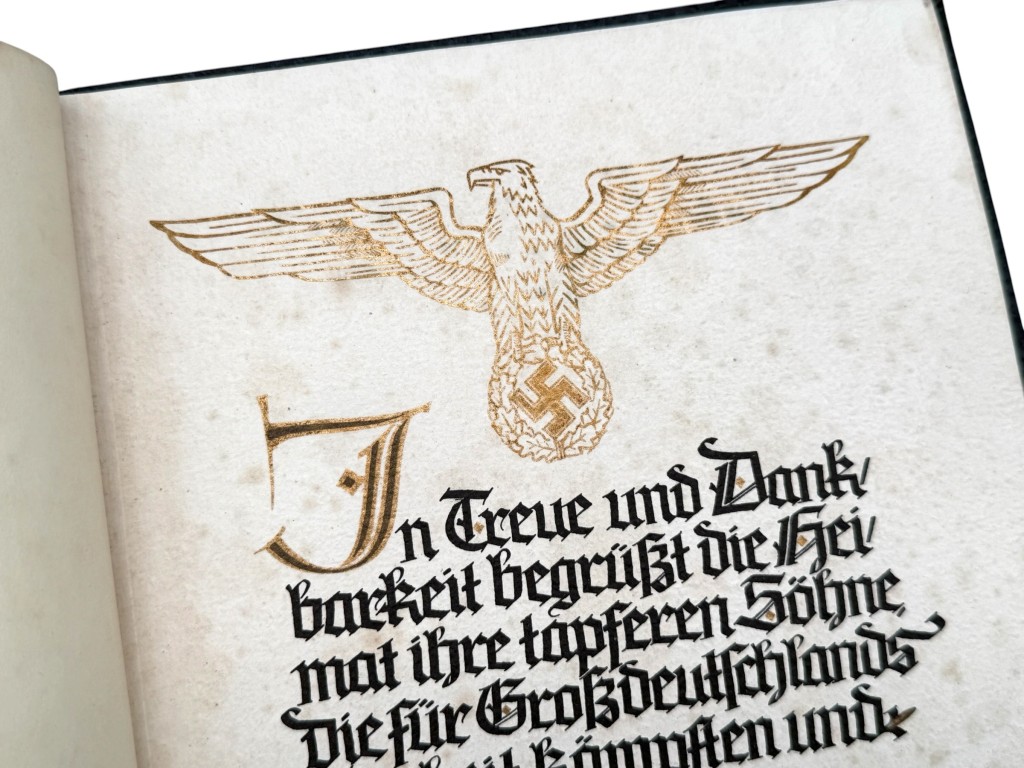 In Treue und Dank/
barkeit begrüßt die Hei/
mat ihre tapferen Söhne,
Die für Großdeutschlands
kämpften und